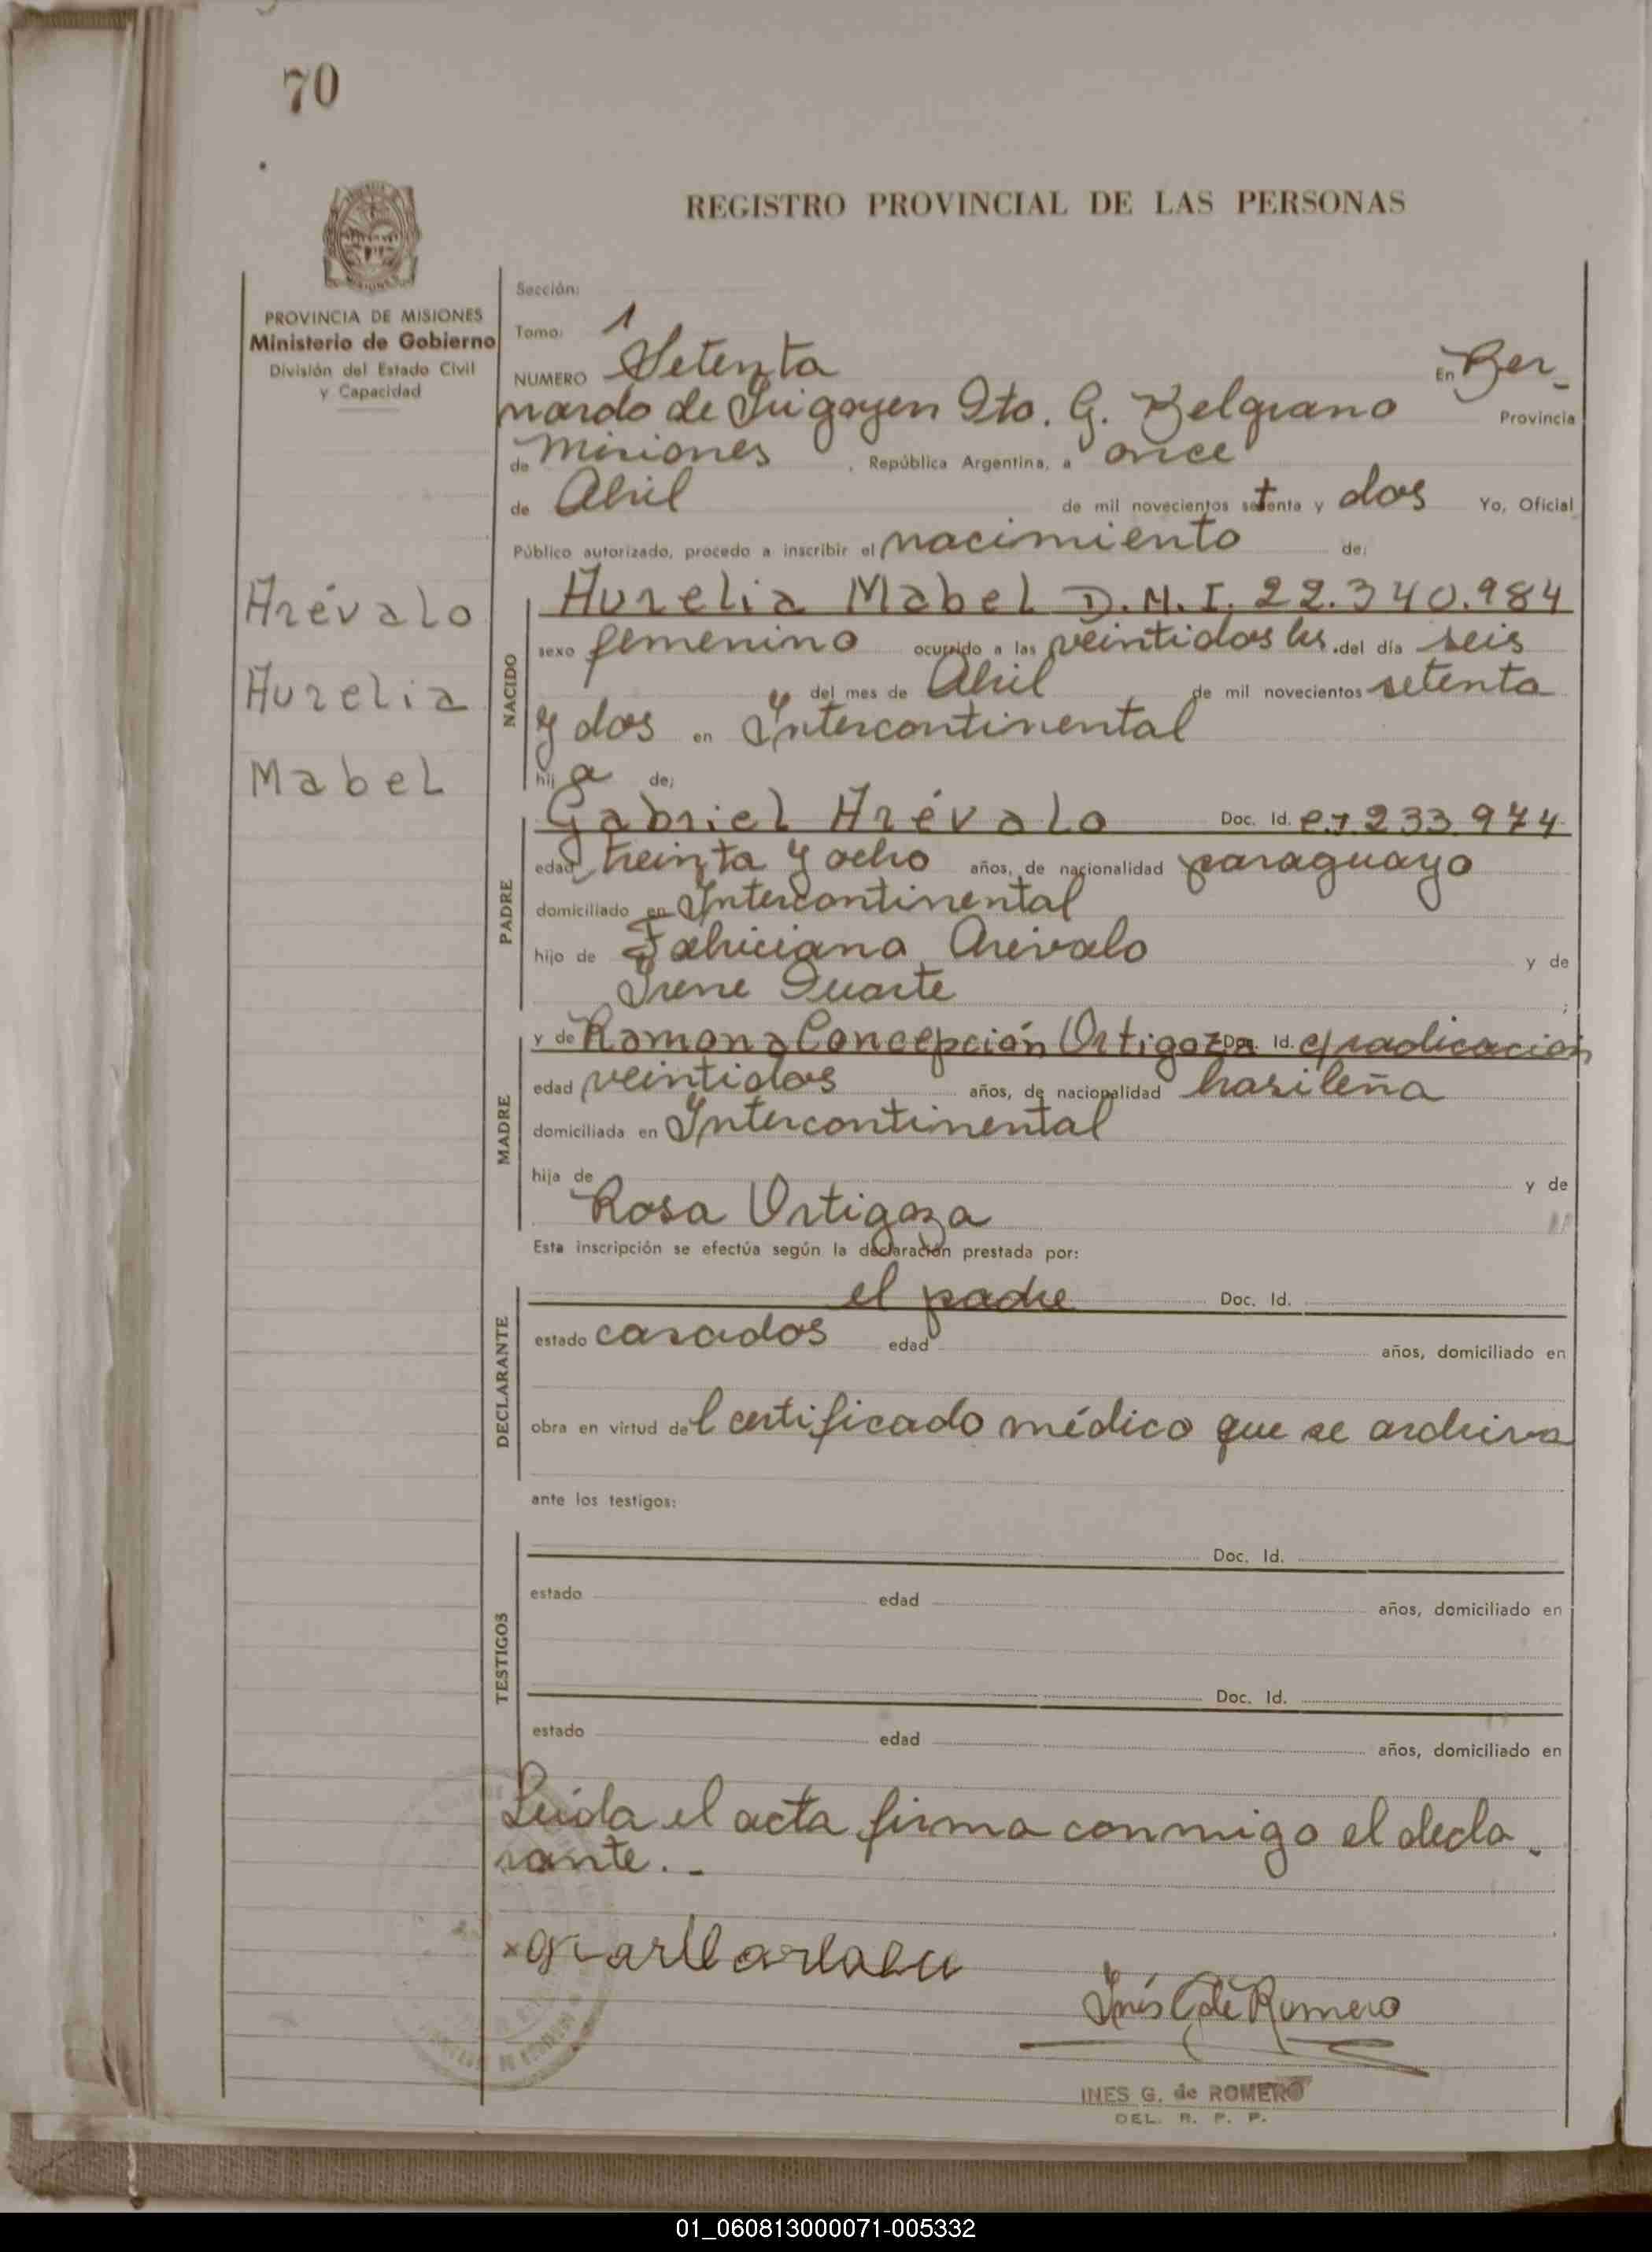 70
REGISTRO PROVINCIAL DE LAS PERSONAS
PROVINCIA DE MISIONES
Ministerio de Gobierno
División del Estado Civil
y Capacidad
Sección:
Tomo: 1
NUMERO Setenta En Ber-
nardo de Irigoyen Dto. G. Belgrano Provincia
de Misiones, República Argentina, a once
de Abril de mil novecientos setenta y dos Yo, Oficial
Público autorizado, procedo a inscribir el nacimiento de:
Arévalo
Aurelia
Mabel
NACIDO
Aurelia Mabel D.N.I. 22.340.984
sexo femenino ocurrido a las veintidos hs. del día seis
del mes de Abril de mil novecientos setenta
y dos en Intercontinental
hij a de:
PADRE
Gabriel Arévalo Doc. Id. 233974
edad treinta y ocho años, de nacionalidad paraguayo
domiciliado en Intercontinental
hijo de Arevalo y de
Irene Duarte ;
MADRE
y de Ramona Concepción Ortigoza Doc. Id. c/radicacion
edad veintidos años, de nacionalidad brasileña
domiciliada en Intercontinental
hija de y de
Rosa Ortigoza
Esta inscripción se efectúa según la declaración prestada por:
DECLARANTE
el padre Doc. Id.
estado casados edad años, domiciliado en
obra en virtud del certificado médico que se archiva
ante los testigos:
TESTIGOS
Doc. Id.
estado edad años, domiciliado en
Doc. Id.
estado edad años, domiciliado en
Leida el acta firma conmigo el decla-
rante.-
Inés G. de Romero
INES G. de ROMERO
DEL. R. P. P.
01_060813000071-005332